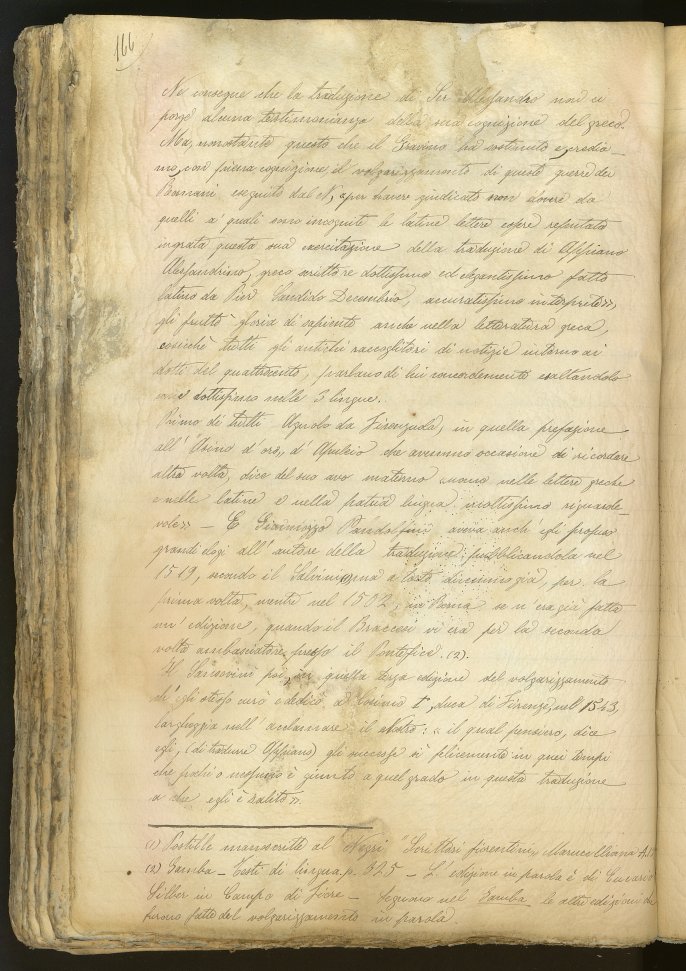 166
Ne consegue che la traduzione di Ser Alessandro non ci
porge alcuna testimonianza della sua cognizione del greco.
Ma, nonostante questo che il Gravino ha sostenuto e, credia-
mo, con piena cognizione, il volgarizzamento di queste guerre dei
Romani eseguito dal N, « per havere giudicato non dovere da
quelli a' quali sono incognite le latine lettere essere reputata
ingrata questa sua exercitazione della traduzione di Appiano
Alessandrino, greco scrittore dottissimo ed elegantissimo fatto
latino da Pier Candido Decembrio, accuratissimo interprite »,
gli fruttò gloria di sapiente anche nella letteratura greca,
cosicchè tutti gli antichi raccoglitori di notizie intorno ai
dotti del quattrocento, parlano di lui concordemente esaltandolo
come dottissimo nelle 3 lingue.
Primo di tutti Agnolo da Firenzuola, in quella prefazione
all' Asino d'oro, d' Apuleio che avemmo occasione di ricordare
altra volta, dice del suo avo materno « uomo nelle lettere greche
e nelle latine e nella patria lingua moltissimo riguarde-
vole » — E Giannozzo Pandolfini aveva anch' egli profuso
grandi elogi all' autore della traduzione pubblicandola nel
1519, secondo il Salvini (1) ma a torto dicemmo già, per la
prima volta, mentre nel 1502, in Roma se n'era già fatta
un' edizione, quando il Braccesi vi era per la seconda
volta ambasciatore presso il Pontefice. (2).
Il Sansovini poi, in quella terza edizione del volgarizzamento
ch' egli stesso curò e dedicò a Cosimo I, duca di Firenze, nel 1543,
largheggia nell' acclamare il Nostro: « il qual pensiero, dice
egli, (di tradurre Appiano) gli successe sì felicemente in quei tempi
che pochi o nessuno è giunto a quel grado in questa traduzione
a che egli è salito ».
(1) Postille manoscritte al "Negri" Scrittori fiorentini, Marucelliana A.
(2) Gamba — Testi di lingua p. 325 — L' edizione in parola è di Eucario
Silber in Campo di Fiore — Seguono nel Gamba le altre edizioni che
furono fatte del volgarizzamento in parola.